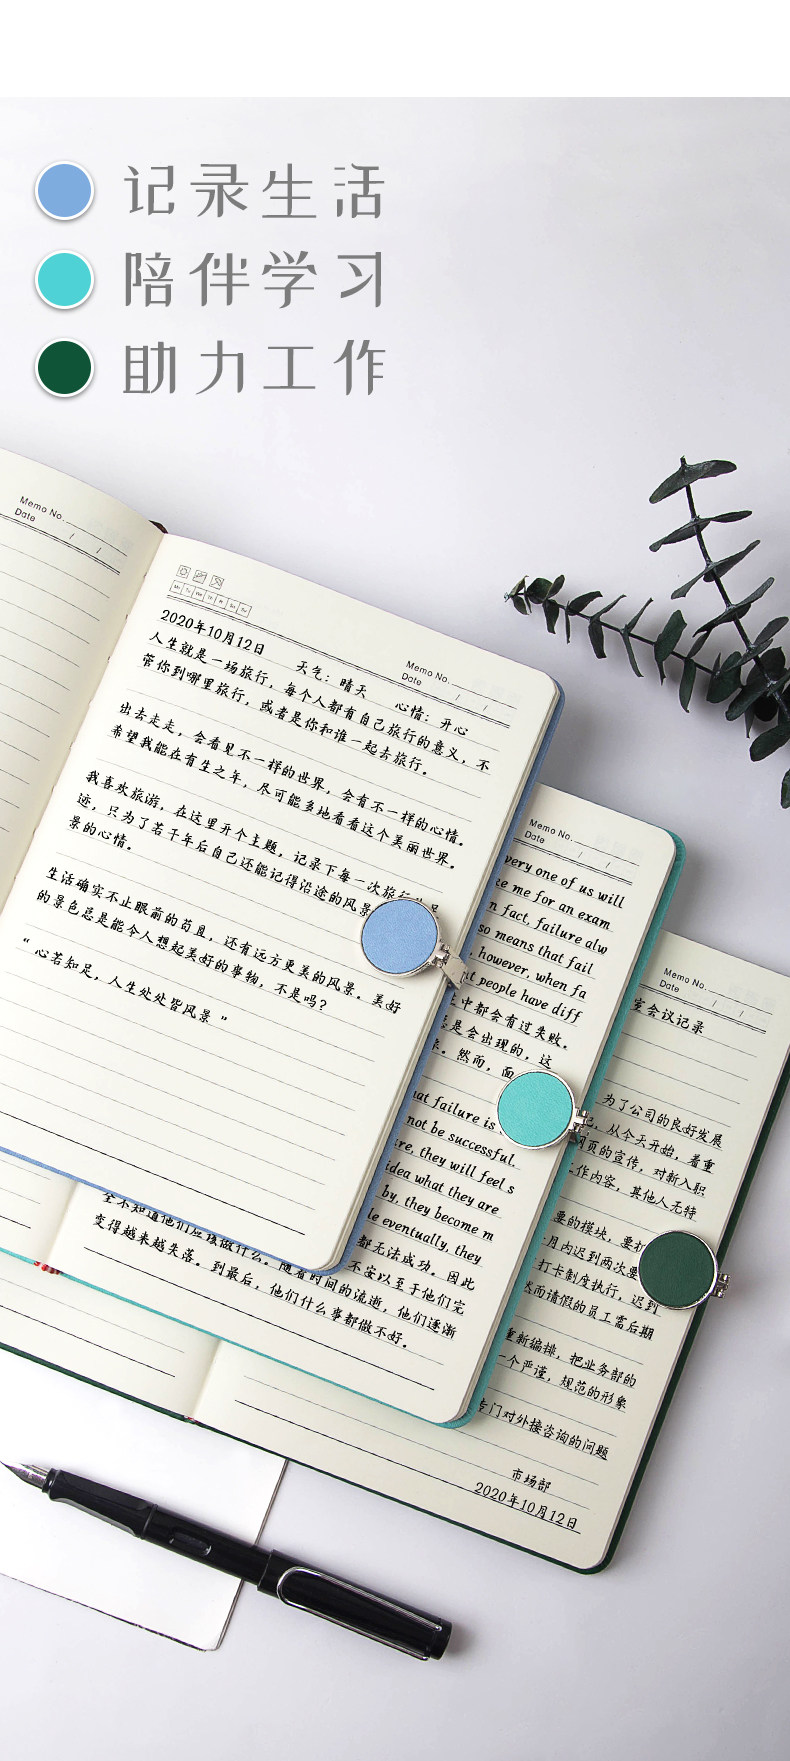 记录生活
陪伴学习
助力工作
Memo No.
Date / /
Mo Tu We Th Fr Sa Su
Memo No.
Date / /
2020年10月12日 天气：晴天 心情：开心
人生就是一场旅行，每个人都有自己旅行的意义，不
管你到哪里旅行，或者是你和谁一起去旅行。
出去走走，会看见不一样的世界，会有不一样的心情。
希望我能在有生之年，尽可能多地看看这个美丽世界。
我喜欢旅游，在这里开个主题，记录下每一次旅行
迹，只为了若干年后自己还能记得沿途的风景
景的心情。
生活确实不止眼前的苟且，还有远方更美的风景。美好
的景色总是能令人想起美好的事物，不是吗？
“ 心若知足，人生处处皆风景 ”
Memo No.
Date / /
very one of us will
me for an exam
n fact, failure alw
so means that fail
, however, when fa
people have diff
中都会有过失败。
是会出现的，这
。然而，面
hat failure is
not be successful.
re, they will feel s
idea what they are
by, they become m
le eventually, they
都无法成功。因此
不安以至于他们完
全不知道他们应该做什么。随着时间的流逝，他们逐渐
变得越来越失落。到最后，他们什么事都做不好。
Memo No.
Date / /
室会议记录
为了公司的良好发展
记，从今天开始，着重
网页的宣传，对新入职
工作内容，其他人无特
要的模块，要打
月内迟到两次要
打卡制度执行，迟到
然而请假的员工需后期
重新编排，把业务部的
一个严谨，规范的形象
专门对外接咨询的问题
市场部
2020年10月12日